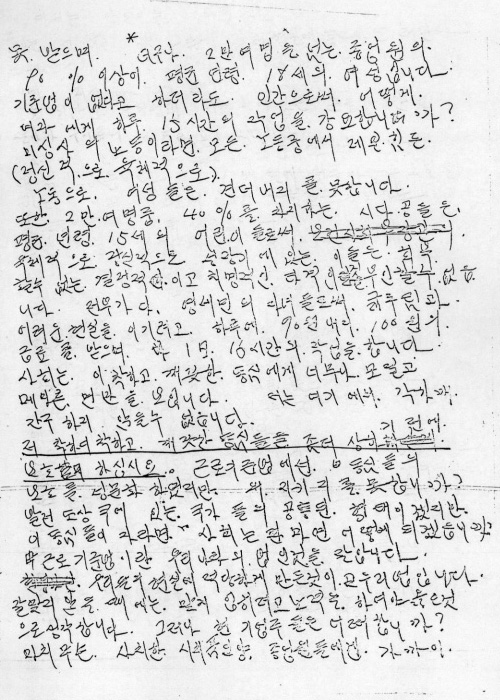 못 받으며. * 더구나. 2만 여명을 넘는. 종업원의.
90%이상이. 평균 연령. 18세의. 여성입니다.
기준법이 없다고 하더라도. 인간으로써. 어떻게.
여자에게 하루. 15시간의 작업을 강요합니까?
미싱사의 노동이라면. 모든. 노동중에서 제일 힘든.
(정신적.으로. 육체적으로).
노동으로. 여성들은. 견뎌내지를 못합니다.
또한. 2만 여명중. 40%를 차지하는. 시다공들은.
평균 연령. 15세의 어린이들로써.
육체적으로. 정신적으로 성장기에 있는. 이들은. 회복
할수 없는. 결정적이고 치명적인. 타격인 것을 부인할수 없읍
니다. 전부가 다. 영세민의 자녀들로써. 굶주림과.
어려운 현실을. 이기려고. 하루에. 90원 내지. 100원의.
급료를. 받으며. 1日. 16시간의. 작업을. 합니다.
사회는. 이 착하고. 깨끗한. 동심에게 너무나 모질고
메마른. 면만을. 보입니다. 저는 여기에서. 각하께.
간구하지 않을수 없습니다.
저 착하디 착하고. 깨끗한 동심들을 좀더 상하기 전에.
보호하십시요. 근로기준법에선. 동심들의
보호를. 성문화 하였지만. 왜. 지키지를. 못합니까?
발전도상국에 있는. 국가들의 공통된. 형태이겠지만.
이 동심들이 자라면. 사회는 과연 어떻게 되겠습니까?
근로기준법이란 우리나라의 법인것을. 잘 압니다.
우리들의 현실에 적당하게 만든것이 곧 우리법입니다.
잘 맞지 않을. 때에는. 맞게 입히려고 노력을. 하여야 옳은것
으로 생각합니다. 그러나 현 기업주들은 어떠합니까?
마치 무슨. 사치한. 사치품인양. 종업원들에겐. 가까이.